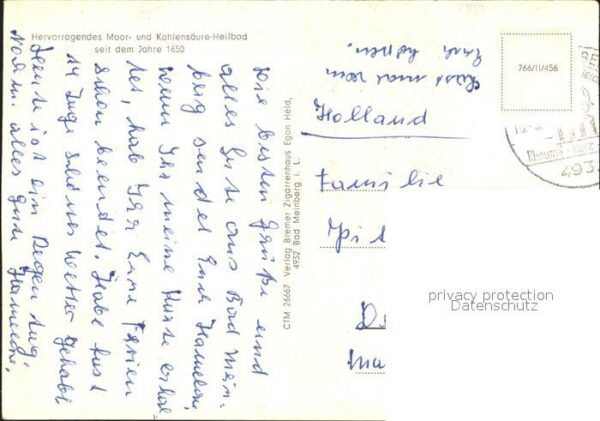 Hervorragendes Moor- und Kohlensäure-Heilbad
seit dem Jahre 1650
766/II/456
493
Die besten Grüße und
alles Gute aus Bad Mein-
berg sendet Euch
wenn Ihr meine Karte erhal
tet, habt Ihr Eure Ferien
schon beendet. Habe fast
14 Tage schönes Wetter gehabt
Heute ist ein Regentag.
Nochm. alles gute
CTM 26667 Verlag Bremer Zigarrenhaus Egon Held,
4932 Bad Meinberg i. L.
Lasst mal von
Euch hören.
Holland
Familie
privacy protection
Datenschutz